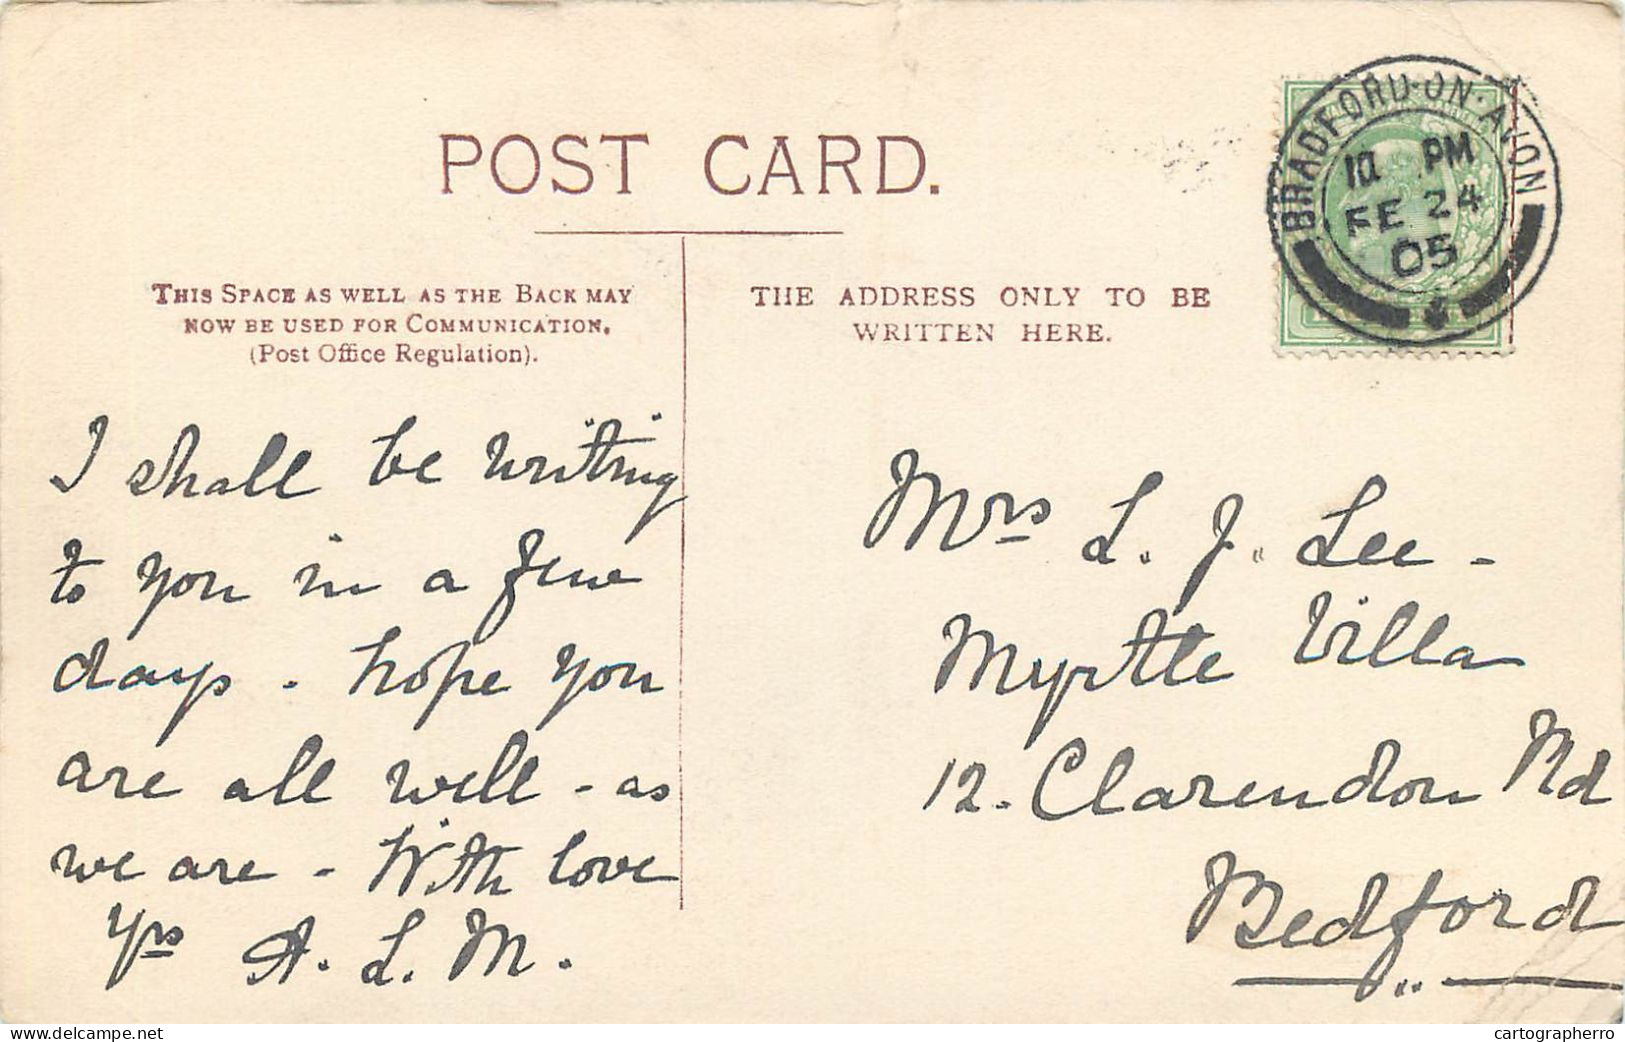 POST CARD.
THIS SPACE AS WELL AS THE BACK MAY
NOW BE USED FOR COMMUNICATION.
(Post Office Regulation).
THE ADDRESS ONLY TO BE
WRITTEN HERE.
BRADFORD·ON·AVON
PM
FE 24
05
I shall be writing
to you in a few
days. hope you
are all well - as
we are - With love
Yrs A. L. M.
Mrs L. J. Lee -
Myrtle Villa
12. Clarendon Rd
Bedford
delcampe.net
cartographerro